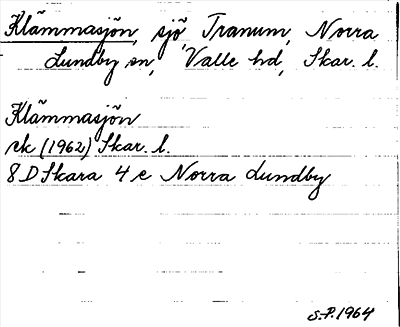 Klämmasjön, sjö, Tranum, Norra
Lundby sn, Valle hd, Skar. l.
Klämmasjön
rk (1962) Skar. l.
8 D Skara 4 e Norra Lundby
S.P. 1964